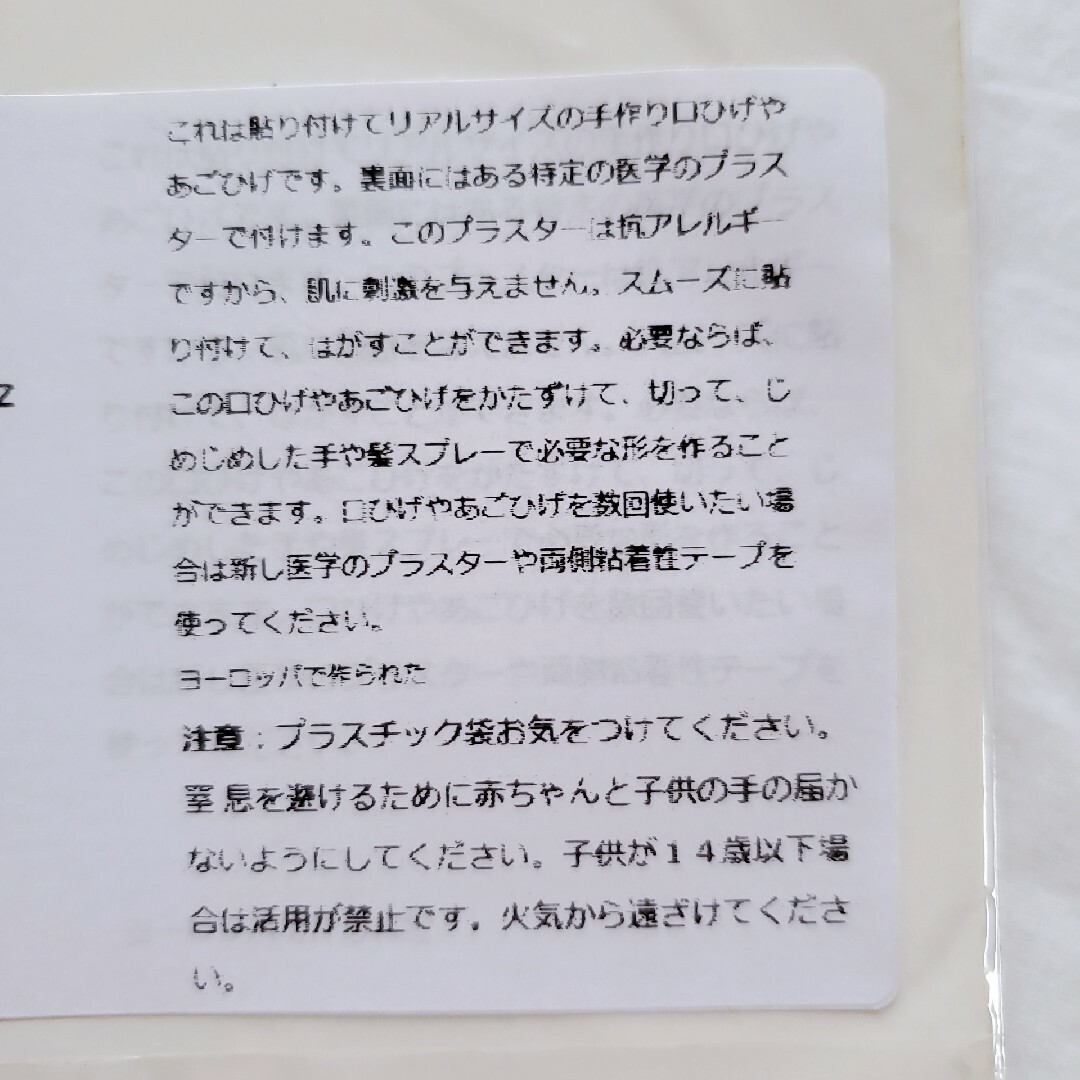 これは貼り付けてリアルサイズの手作り口ひげや
あごひげです。裏面にはある特定の医学のプラス
ターで付けます。このプラスターは抗アレルギー
ですから、肌に刺激を与えません。スムーズに貼
り付けて、はがすことができます。必要ならば、
この口ひげやあごひげをかたずけて、切って、じ
めじめした手や髪スプレーで必要な形を作ること
ができます。口ひげやあごひげを数回使いたい場
合は新し医学のプラスターや両側粘着性テープを
使ってください。
ヨーロッパで作られた
注意：プラスチック袋お気をつけてください。
窒息を避けるために赤ちゃんと子供の手の届か
ないようにしてください。子供が１４歳以下場
合は活用が禁止です。火気から遠ざけてくださ
い。
z